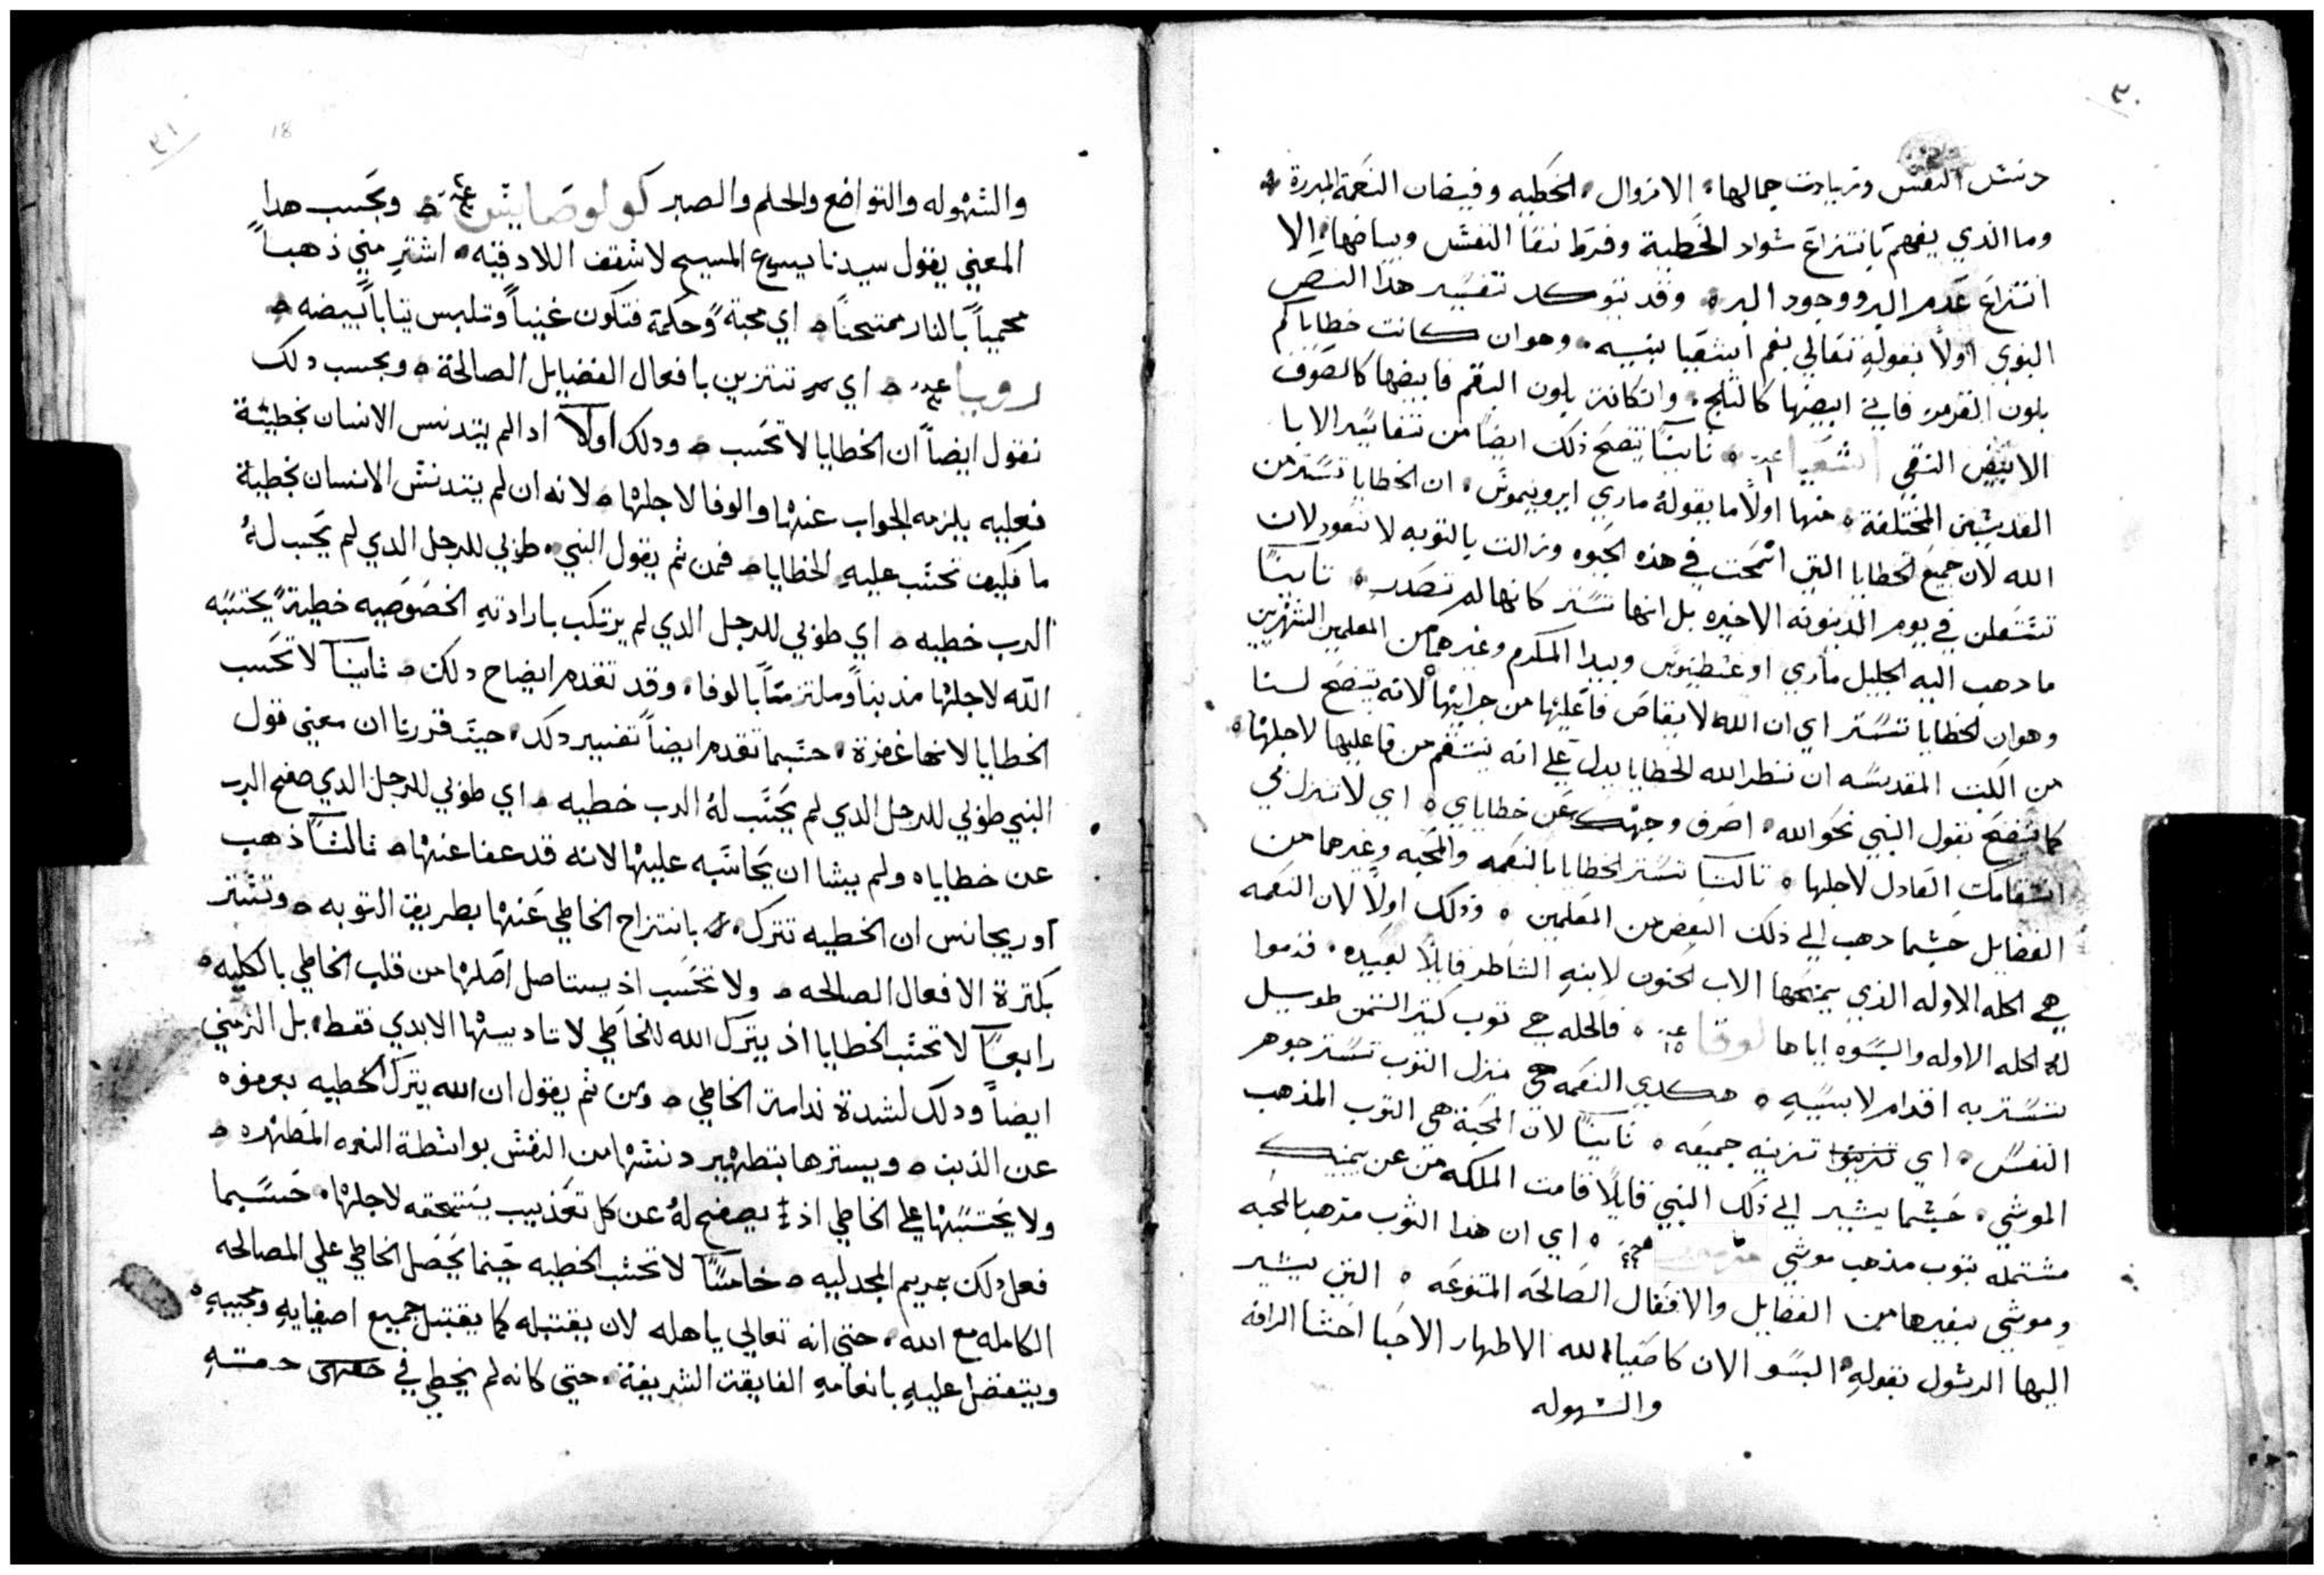 ٣٠
دنس النفس وزيادت جمالها الا زوال الخطيه وفيضان النعمة المبررة
وما الذي يفهم بانتزاع سواد الخطية وفرط نقا النفس وبياضها الا
انتزاع عدم البر ووجود البر وقد يتوكد تفسير هذا النص
النبوي اولاً بقوله تعالي بفم اشعيا نبيه وهو ان كانت خطاياكم
بلون القرمز فاني ابيضها كالثلج وان كانت بلون البقم فابيضها كالصوف
الابيض النقي اشعيا ثانياً يتضح ذلك ايضاً من تفاسير الابا
القديسين المختلفة منها اولاً ما يقوله ماري ايرونيموس ان الخطايا تستر من
الله لان جميع الخطايا التي انمحت في هذه الحيوه وزالت بالتوبه لا تعود لان
تستعلن في يوم الدينونه الاخيره بل انها تستر كانها لم تصدر ثانياً
ما دهب اليه الجليل ماري اوغسطينوس وبيدا المكرم وغيرهما من المعلمين الشهيرين
وهو ان الخطايا تستر اي ان الله لا يقاص فاعليها من جرايتها لانه يتضح لسنا
من الكتب المقدسه ان نظر الله الخطايا يدل علي انه ينتقم من فاعليها لاجلها
كما يتضح بقول النبي نحو الله اصرف وجهك عن خطاياي اي لا تنزل بي
انتقامك العادل لاجلها ثالثاً تستر الخطايا بالنعمه والمحبه وغيرهما من
الفضايل حسبما دهب الي ذلك البعض من المعلمين وذلك اولاً لان النعمه
هي الحله الاوله الذي يمنحها الاب الحنون لابنه الشاطر قايلاً لعبيده قدموا
له الحله الاوله والبسوه اياها لوقا ١٥ فالحله هي توب كتير التمن طويل
تستر به اقدام لابسيه هكدي النعمه هي منزل التوب تستر جوهر
النفس اي تزينه جميعه ثانياً لان المحبة هي التوب المذهب
الموشي حسبما يشير الي ذلك النبي قايلاً قامت الملكه من عن يمينك
مشتمله بتوب مذهب موشي مزمور ٤٤ اي ان هذا الثوب مذهب بالمحبه
وموشي بغيرها من الفضايل والافعال الصالحه المتنوعه التي يشير
اليها الرسول بقوله البسو الان كاصفيا الله الاطهار الاحبا احشا الرافه
والسهوله
٣١
18
والسهوله والتواضع والحلم والصبر كولوصايس وبحسب هدا
المعني يقول سيدنا يسوع المسيح لاسقف اللادقيه اشتر مني ذهباً
محمياً بالنار ممتحناً اي محبة وحكمة فتكون غنياً وتلبس تياباً بيضه
رويا اي تتزين بافعال الفضايل الصالحة وبحسب دلك
نقول ايضاً ان الخطايا لا تحسب ودلك اولاً اد لم يتدنس الانسان بخطيئة
فعليه يلزمه الجواب عنها والوفا لاجلها لانه ان لم يتدنس الانسان بخطية
ما فكيف تحسب عليه الخطايا فمن ثم يقول النبي طوبي للرجل الدي لم يحسب له
الرب خطيه اي طوبي للرجل الدي لم يرتكب بارادته الخصوصيه خطية يحتسبه
الله لاجلها مذنباً وملتزماً بالوفا وقد تقدم ايضاح دلك ثانياً لا تحسب
الخطايا لانها غفرة حسبما تقدم ايضاً تفسير دلك حيث قررنا ان معني قول
النبي طوبي للرجل الدي لم يحسب له الرب خطيه اي طوبي للرجل الدي صفح الرب
عن خطاياه ولم يشا ان يحاسبه عليها لانه قد عفا عنها ثالثاً ذهب
اوريجانس ان الخطيه تترك بانتزاح الخاطي عنها بطريق التوبه وتستر
بكترة الافعال الصالحه ولا تحسب اذ يستاصل اصلها من قلب الخاطي بالكليه
رابعاً لا تحسب الخطايا اذ يترك الله للخاطي لا تاديبها الابدي فقط بل الزمني
ايضاً ودلك لشدة ندامة الخاطي ومن ثم يقول ان الله يترك الخطيه بعفوه
عن الذنب ويسترها بتطهير دنسها من النفس بواسطة النعمه المطهره
ولا يحتسبها علي الخاطي اذ يصفح له عن كل تعذيب يستحقه لاجلها حسبما
فعل دلك بمريم المجدليه خامساً لا تحسب الخطيه حينما يحصل الخاطي علي المصالحه
الكامله مع الله حتي انه تعالي ياهله لان يقتبله كما يقتبل جميع اصفيايه ومحبيه
ويتفضل عليه بانعامه الفايقت الشريفة حتي كانه لم يخطي في